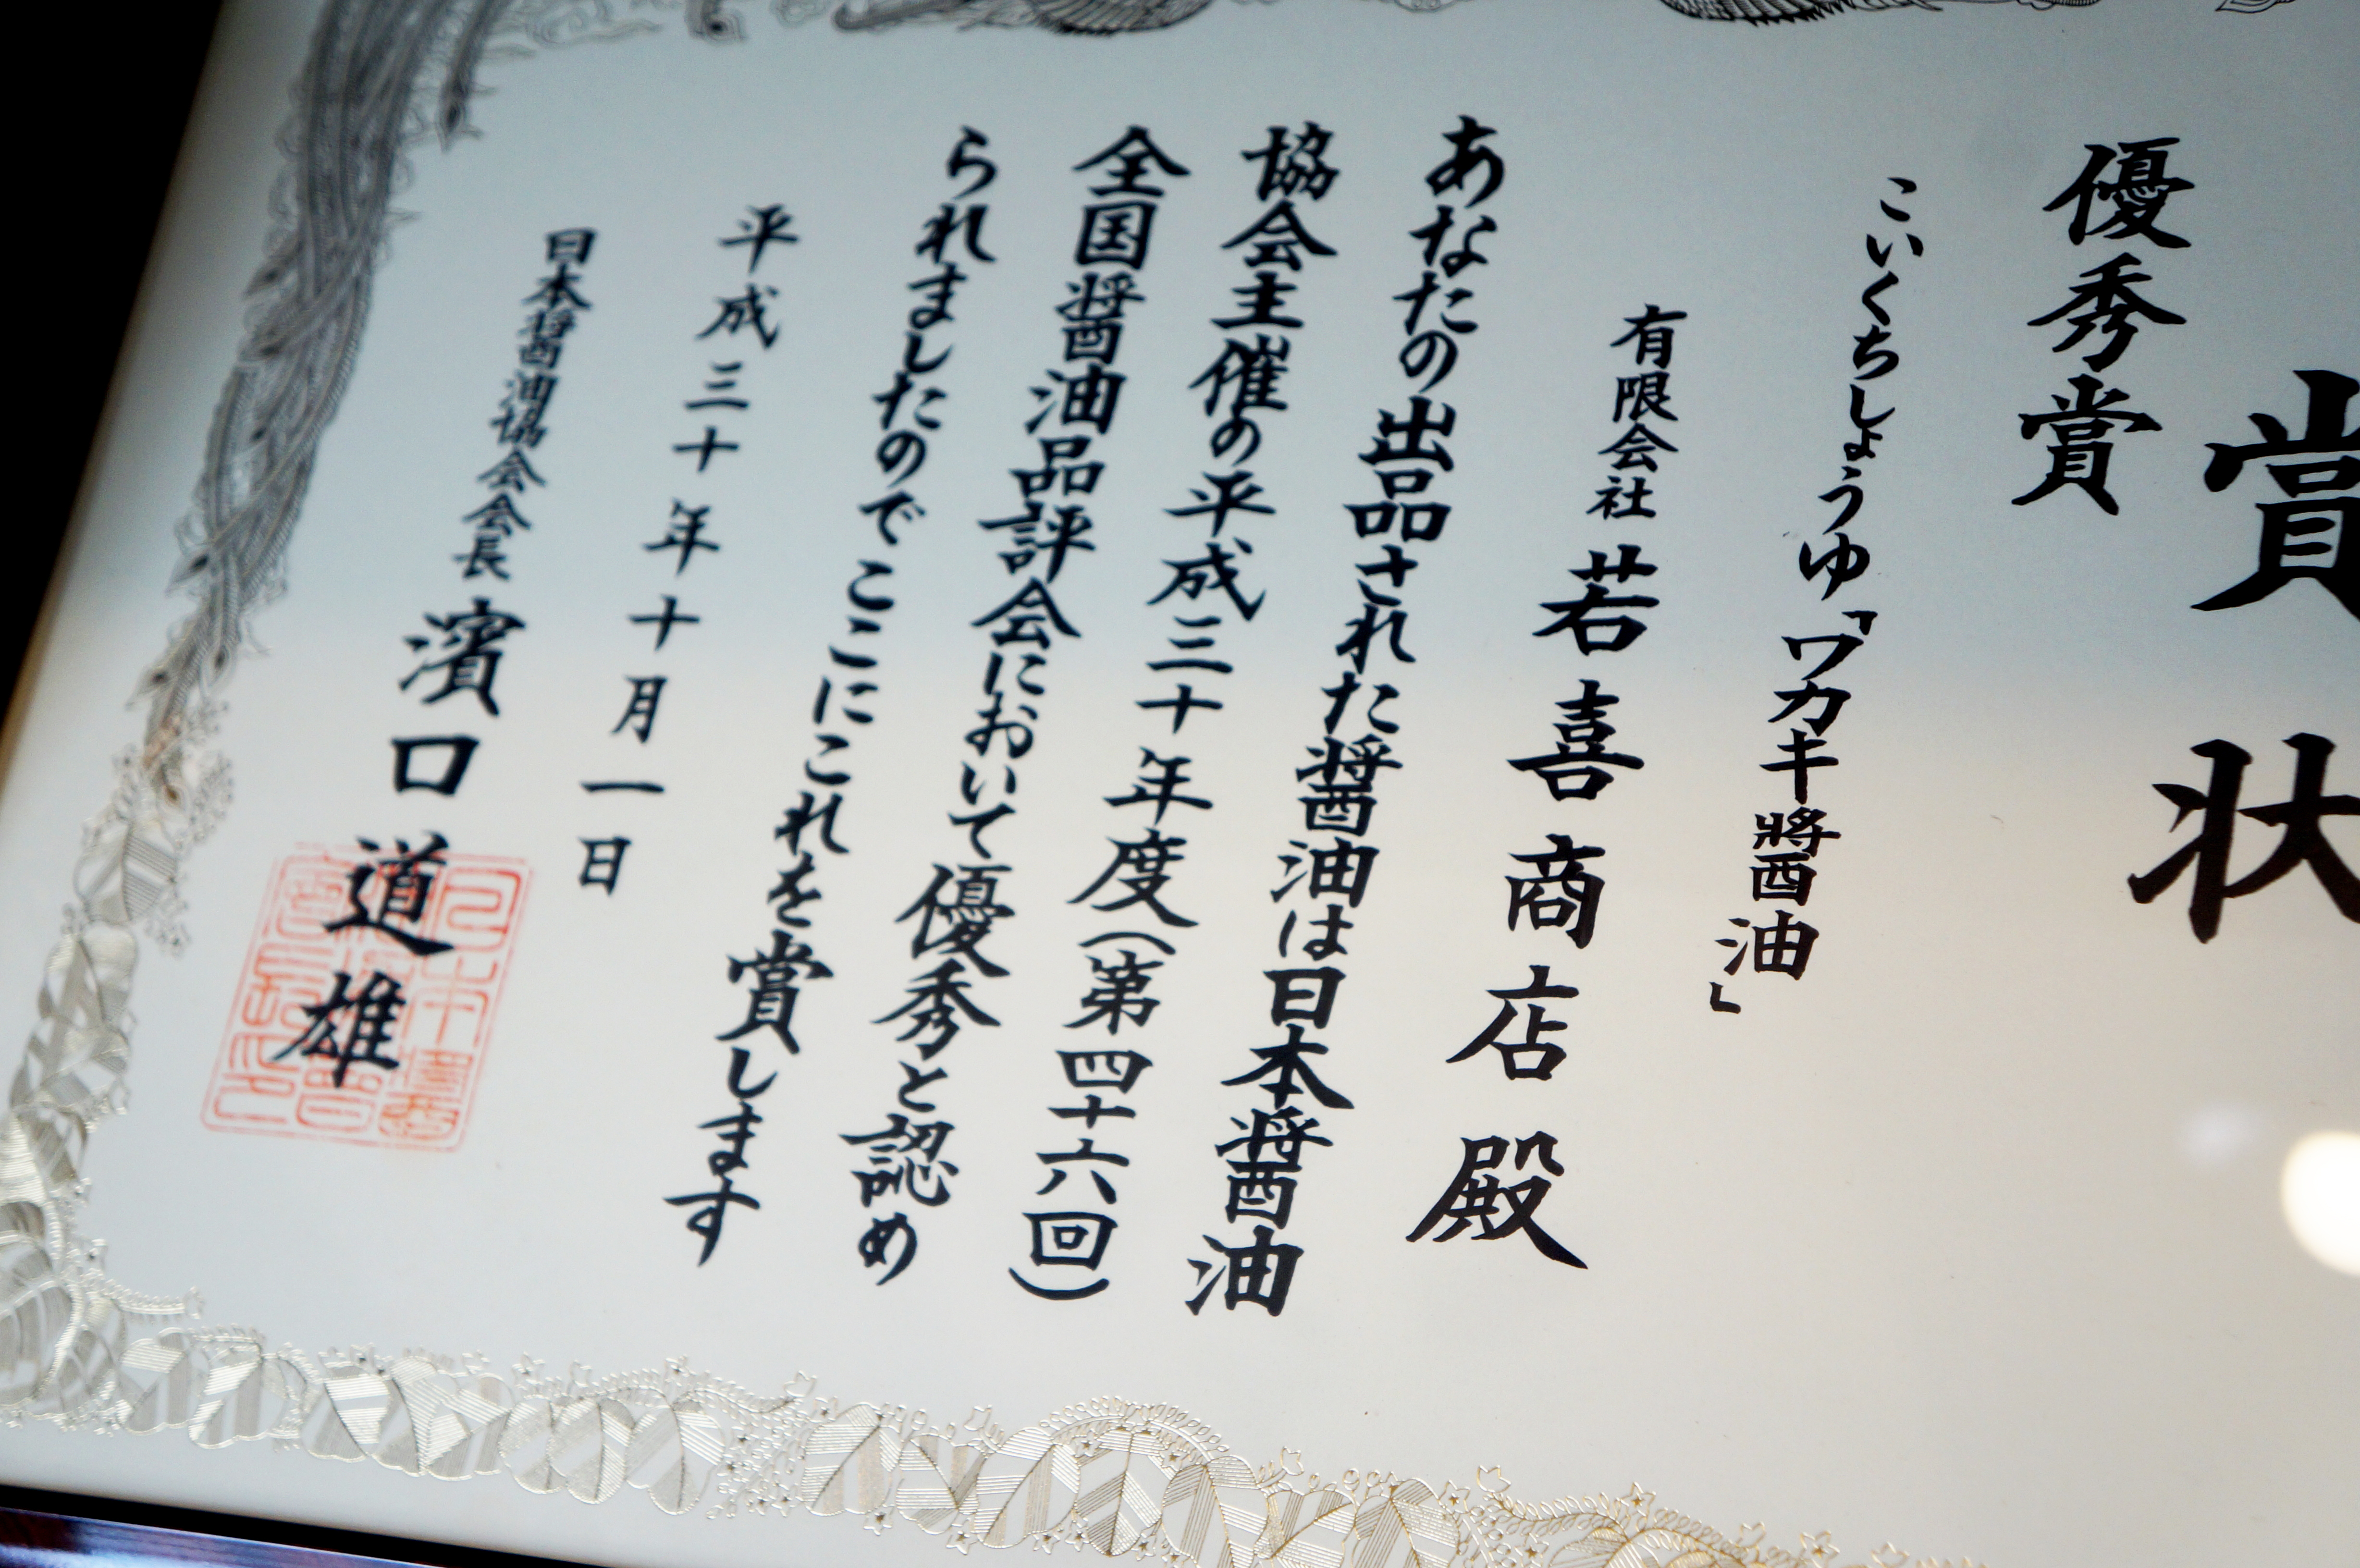 賞状
優秀賞
こいくちしょうゆ「ワカキ醤油」
有限会社 若喜商店 殿
あなたの出品された醤油は日本醤油
協会主催の平成三十年度(第四十六回)
全国醤油品評会において優秀と認め
られましたのでここにこれを賞します
平成三十年十月一日
日本醤油協会会長 濱口道雄